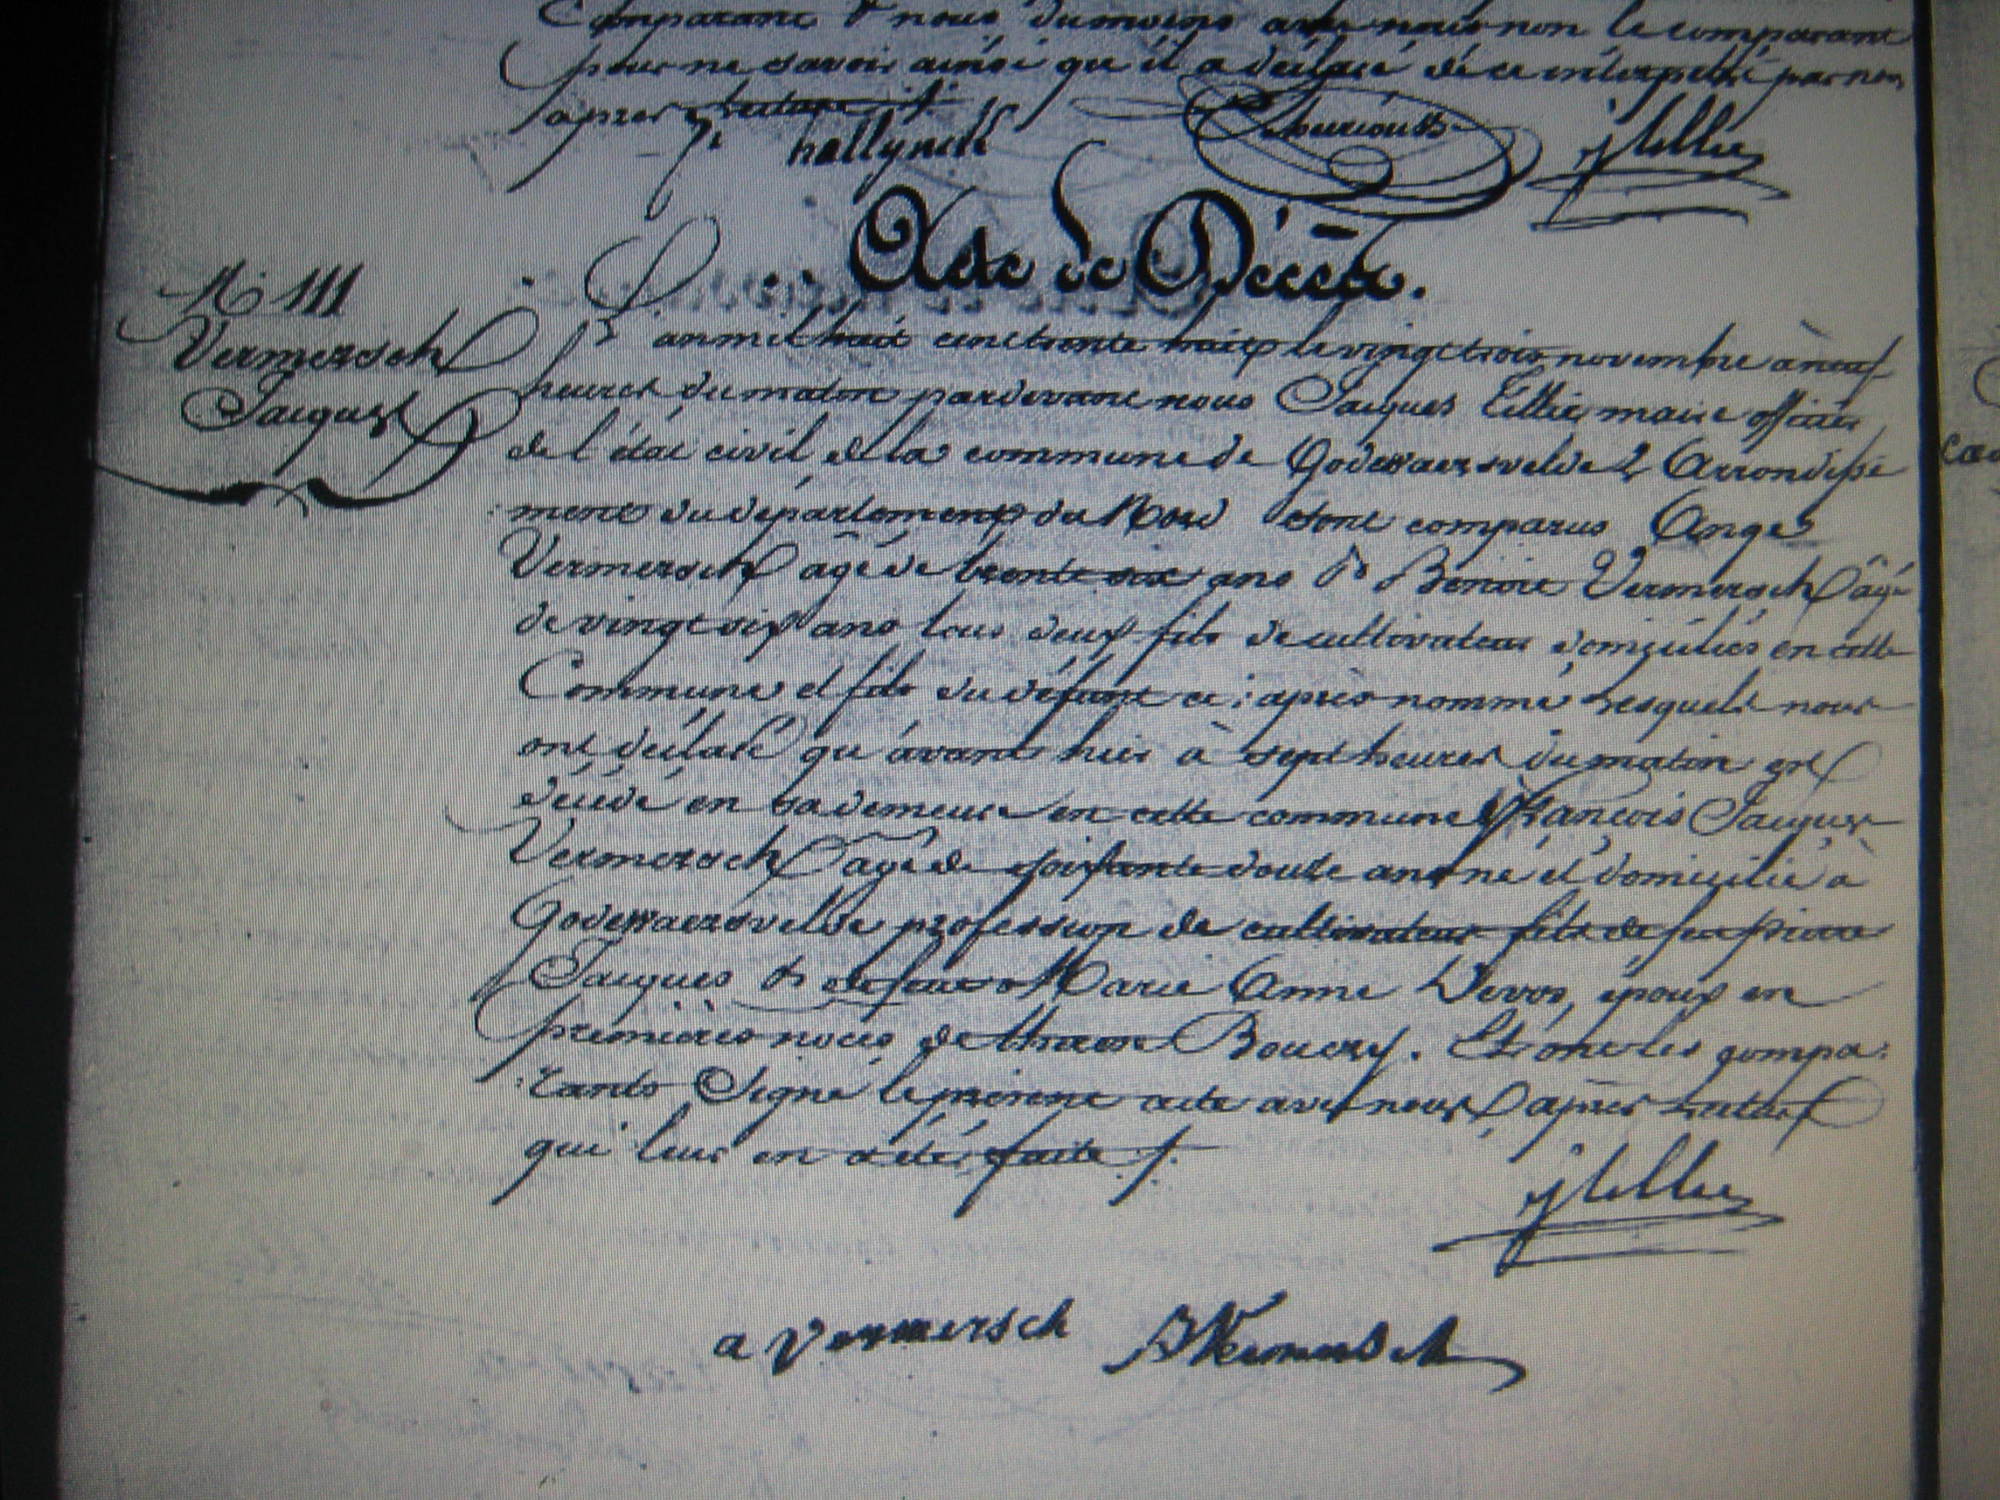 Comparant & nous du moins avec nous non le comparant
pour ne savoir ainsi qu'il a déclaré de ce interpellé par nous
après lecture ./.
hallynck
jtellie
Acte de Décès.
N.º 111
Vermersch
Jacques
L'an mil huit cent trente huit le vingt trois novembre à neuf
heures du matin pardevant nous Jacques Tellie maire officier
de l'état civil de la commune de Godewaersvelde 2 Arrondisse
ment du département du Nord sont comparus Ange
Vermersch âgé de trente six ans & Benoit Vermersch âgé
de vingt six ans tous deux fils de cultivateur domiciliés en cette
Commune et fils du défunt ci-après nommé lesquels nous
ont déclaré qu'avant hier à sept heures du matin est
décédé en sa demeure en cette commune François Jacques
Vermersch âgé de soixante douze ans né et domicilié à
Godewaersvelde profession de cultivateur fils de feu Pierre
Jacques & de feue Marie Anne Devos, époux en
premières noces de Bouery. Et ont les compa:
rants Signé le présent acte avec nous après lecture
qui leur en a été faite ./.
jtellie
a Vermersch
B Vermersch